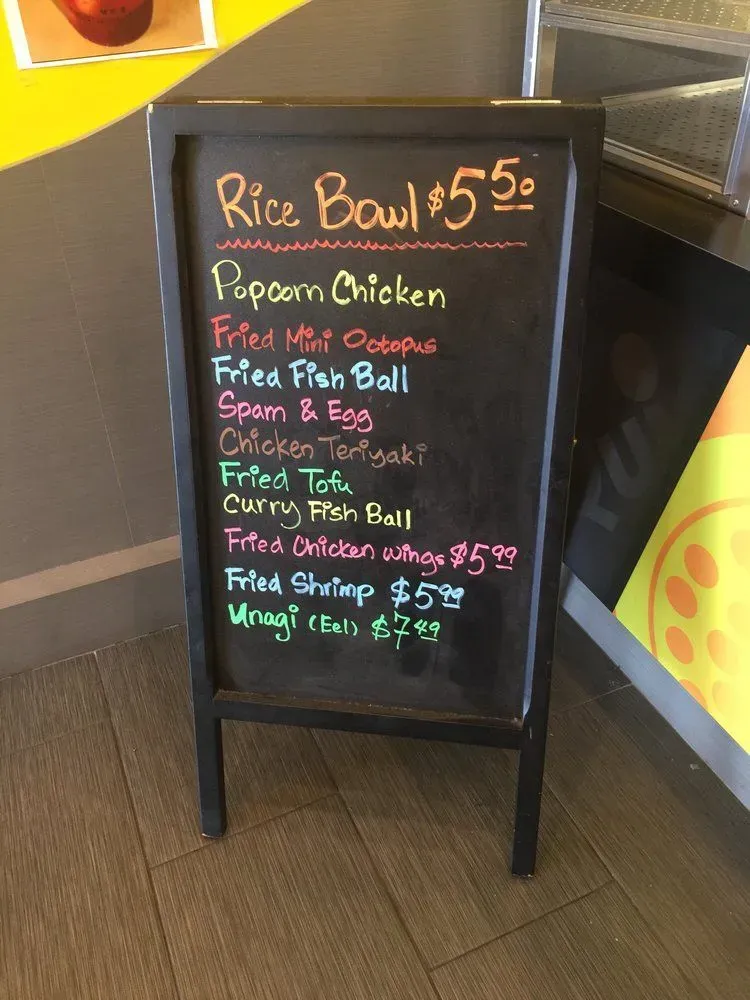 Rice Bowl $5 50
Popcorn Chicken
Fried Mini Octopus
Fried Fish Ball
Spam & Egg
Chicken Teriyaki
Fried Tofu
Curry Fish Ball
Fried Chicken wings $5 99
Fried Shrimp $5 99
Unagi (Eel) $7 49